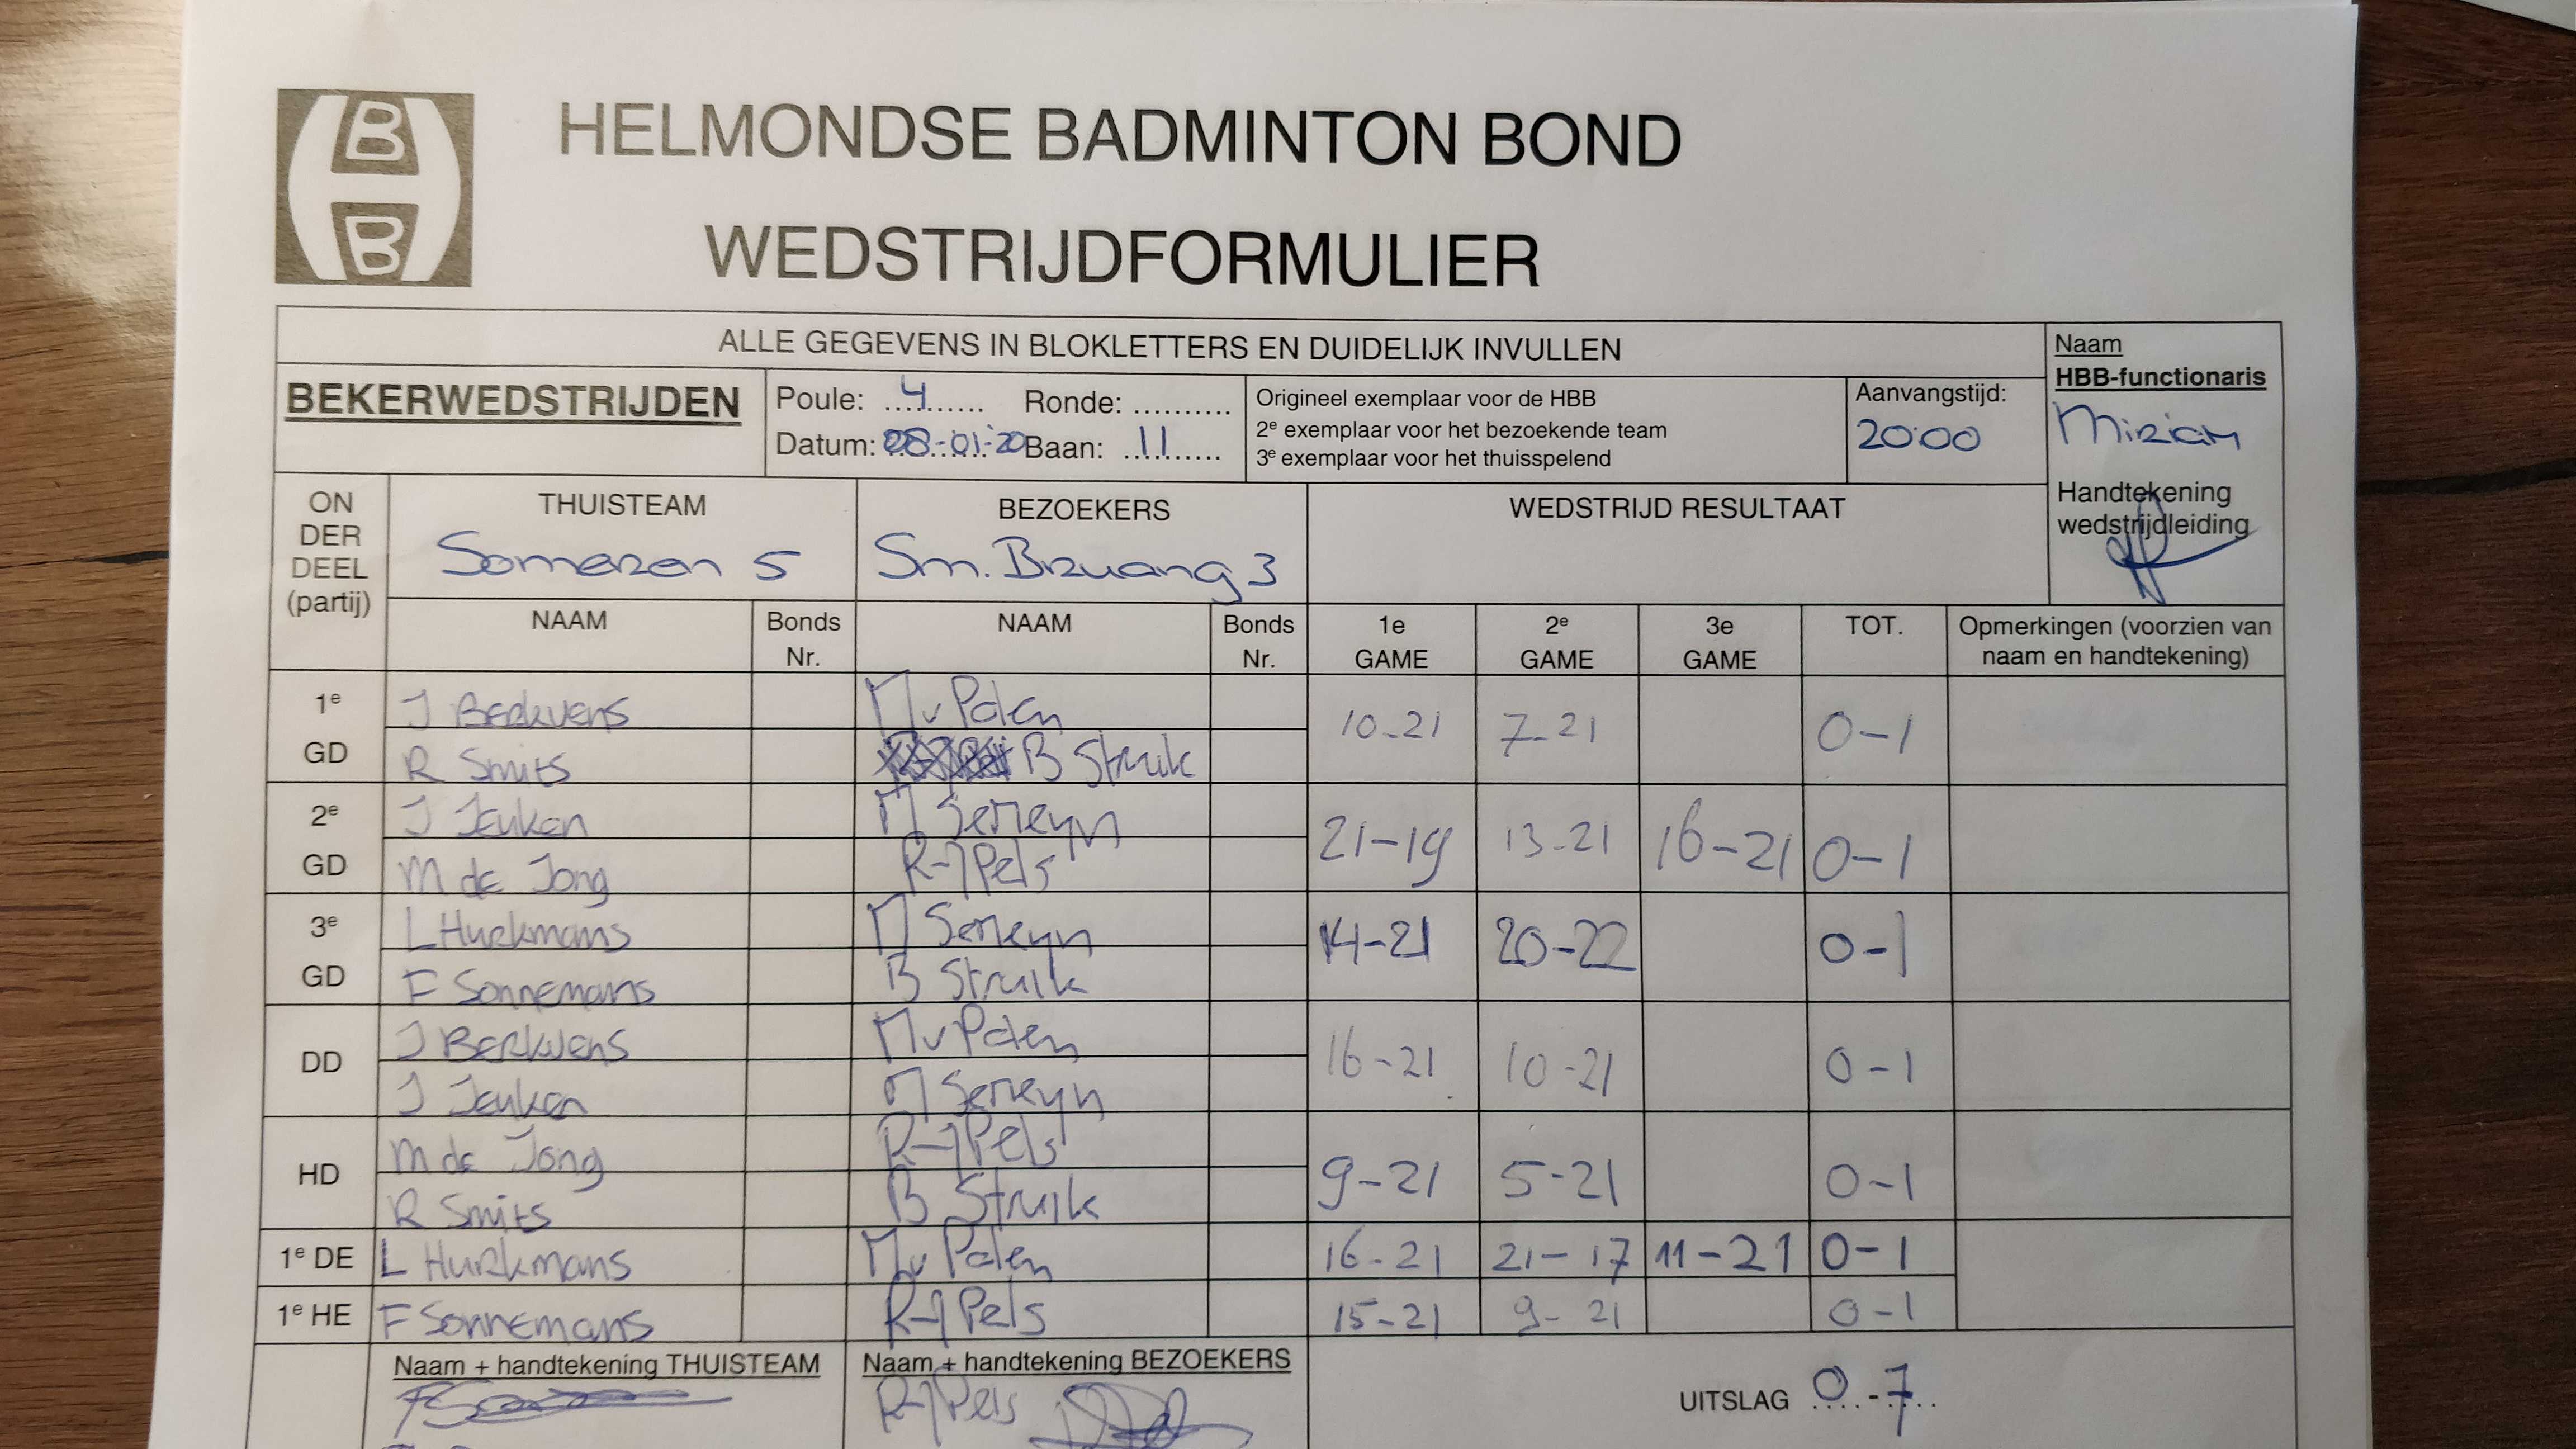 HBB
HELMONDSE BADMINTON BOND
WEDSTRIJDFORMULIER
ALLE GEGEVENS IN BLOKLETTERS EN DUIDELIJK INVULLEN
Naam
HBB-functionaris
Miriam
Handtekening
wedstrijdleiding
BEKERWEDSTRIJDEN
Poule: 4 Ronde: ..........
Datum: 08-01-'20 Baan: 11
Origineel exemplaar voor de HBB
2e exemplaar voor het bezoekende team
3e exemplaar voor het thuisspelend
Aanvangstijd:
20:00
ON
DER
DEEL
(partij)
THUISTEAM
Someren 5
BEZOEKERS
Sm. Bruang 3
WEDSTRIJD RESULTAAT
NAAM Bonds Nr. NAAM Bonds Nr. 1e GAME 2e GAME 3e GAME TOT. Opmerkingen (voorzien van naam en handtekening)
1e GD
J Berkvens M v Palen 10-21 7-21 0-1
R Smits B Struik
2e GD
J Jeuken M Serneyn 21-19 13-21 16-21 0-1
M de Jong R-J Pels
3e GD
L Hurkmans M Serneyn 14-21 20-22 0-1
F Sonnemans B Struik
DD
J Berkvens M v Palen 16-21 10-21 0-1
J Jeuken M Serneyn
HD
M de Jong R-J Pels 9-21 5-21 0-1
R Smits B Struik
1e DE L Hurkmans M v Palen 16-21 21-17 11-21 0-1
1e HE F Sonnemans R-J Pels 15-21 9-21 0-1
Naam + handtekening THUISTEAM
Naam + handtekening BEZOEKERS
R-J Pels
UITSLAG 0-7